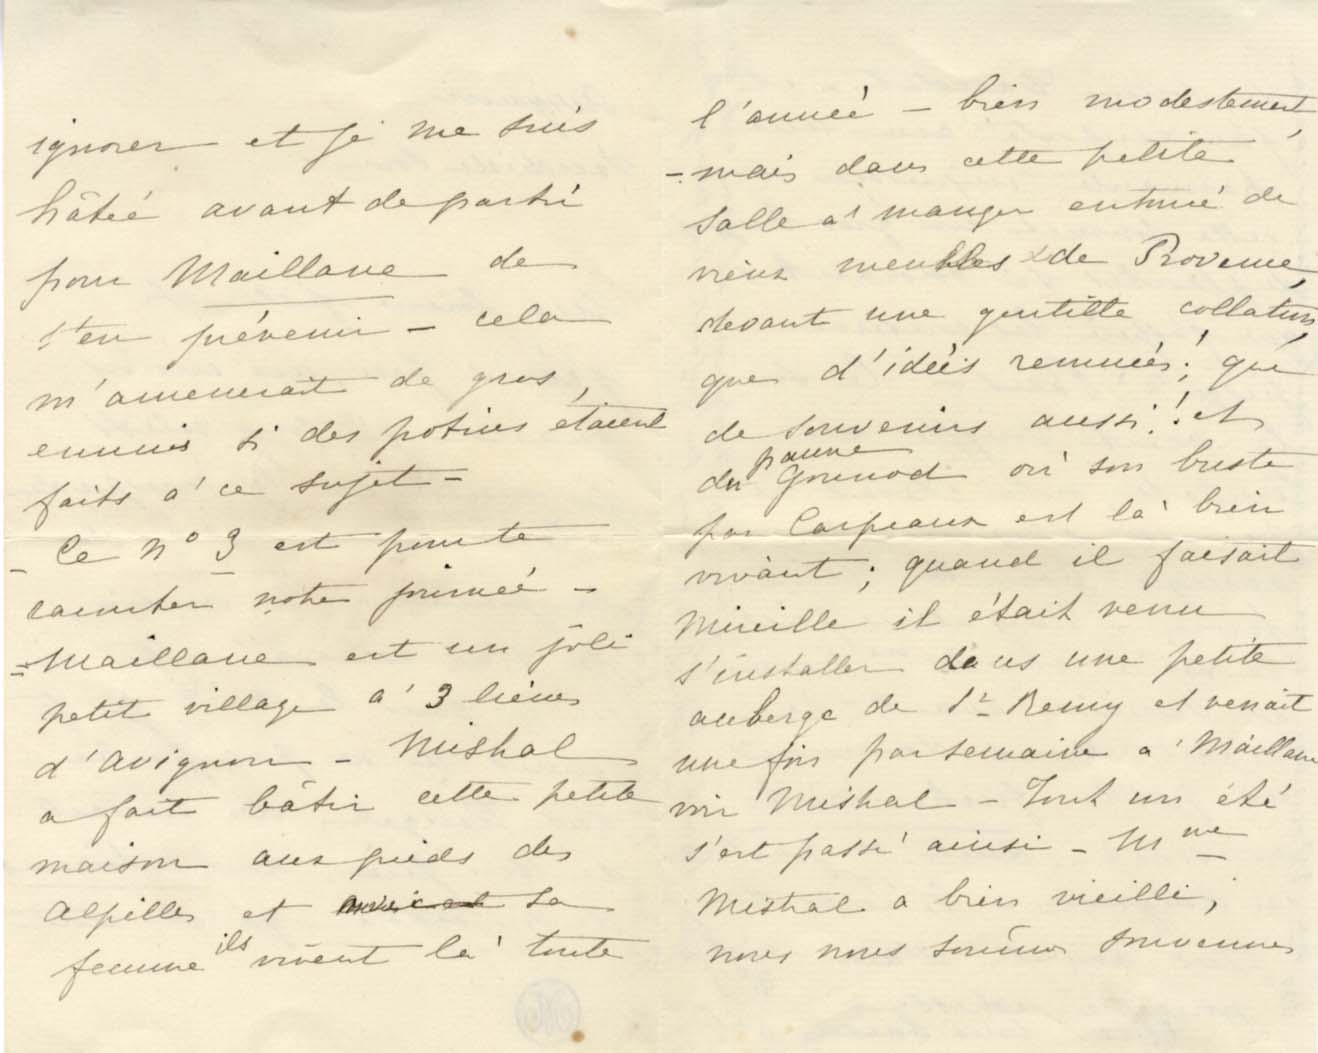 ignorer et je me suis
hâtée avant de partir
pour Maillane de
t'en prévenir – cela
m'amenerait de gros
ennuis si des potins étaient
faits à ce sujet –
– Ce n° 3 est pour te
raconter notre journée –
– Maillane est un joli
petit village à 3 lieues
d'Avignon – Mistral
a fait bâtir cette petite
maison aux pieds des
Alpilles et sa
femme ils vivent là toute
l'année – bien modestement,
– mais dans cette petite
salle à manger entourée de
vieux meubles de Provence,
devant une gentille collation,
que d'idées remuées ! que
de souvenirs aussi ! et
du pauvre Gounod où son buste
par Carpeaux est là bien
vivant ; quand il faisait
Mireille il était venu
s'installer dans une petite
auberge de St Remy et venait
une fois par semaine à Maillane
voir Mistral – Tout un été
s'est passé ainsi – Mme
Mistral a bien vieilli ;
nous nous sommes souvenues